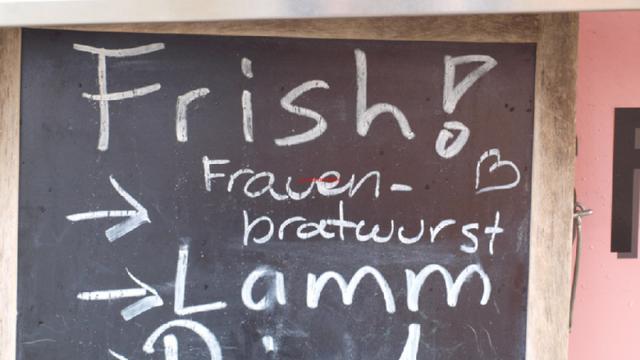 Frish!
Frauen-
bratwurst
Lamm